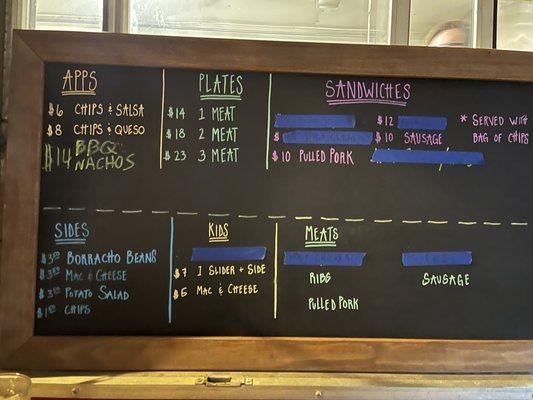 APPS
$6 CHIPS & SALSA
$8 CHIPS & QUESO
$14 BBQ
NACHOS
PLATES
$14 1 MEAT
$18 2 MEAT
$23 3 MEAT
SANDWICHES
$10 PULLED PORK
$12
$10 SAUSAGE
* SERVED WITH
BAG OF CHIPS
SIDES
$3.50 BORRACHO BEANS
$3.50 MAC & CHEESE
$3.50 POTATO SALAD
CHIPS
KIDS
$7 1 SLIDER + SIDE
$5 MAC & CHEESE
MEATS
RIBS
PULLED PORK
SAUSAGE